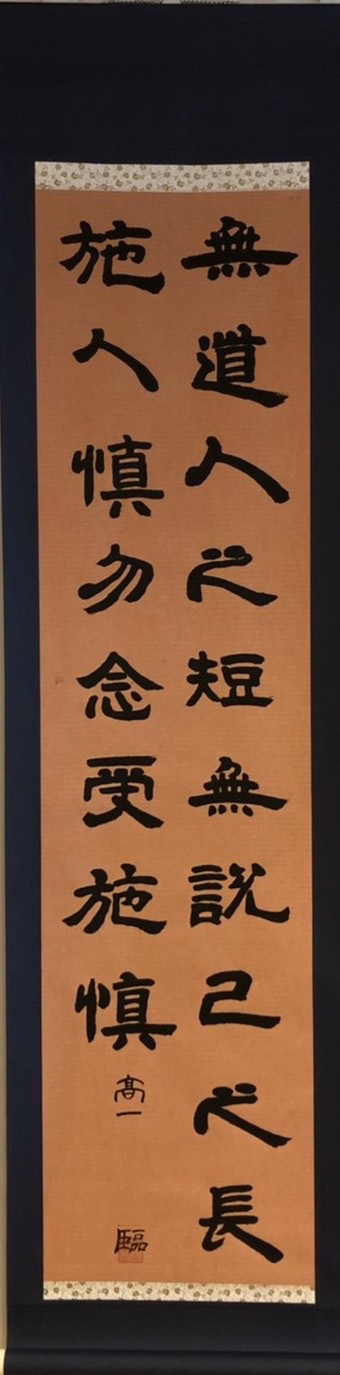 無道人之短無説己之長
施人慎勿念受施慎
高一
臨